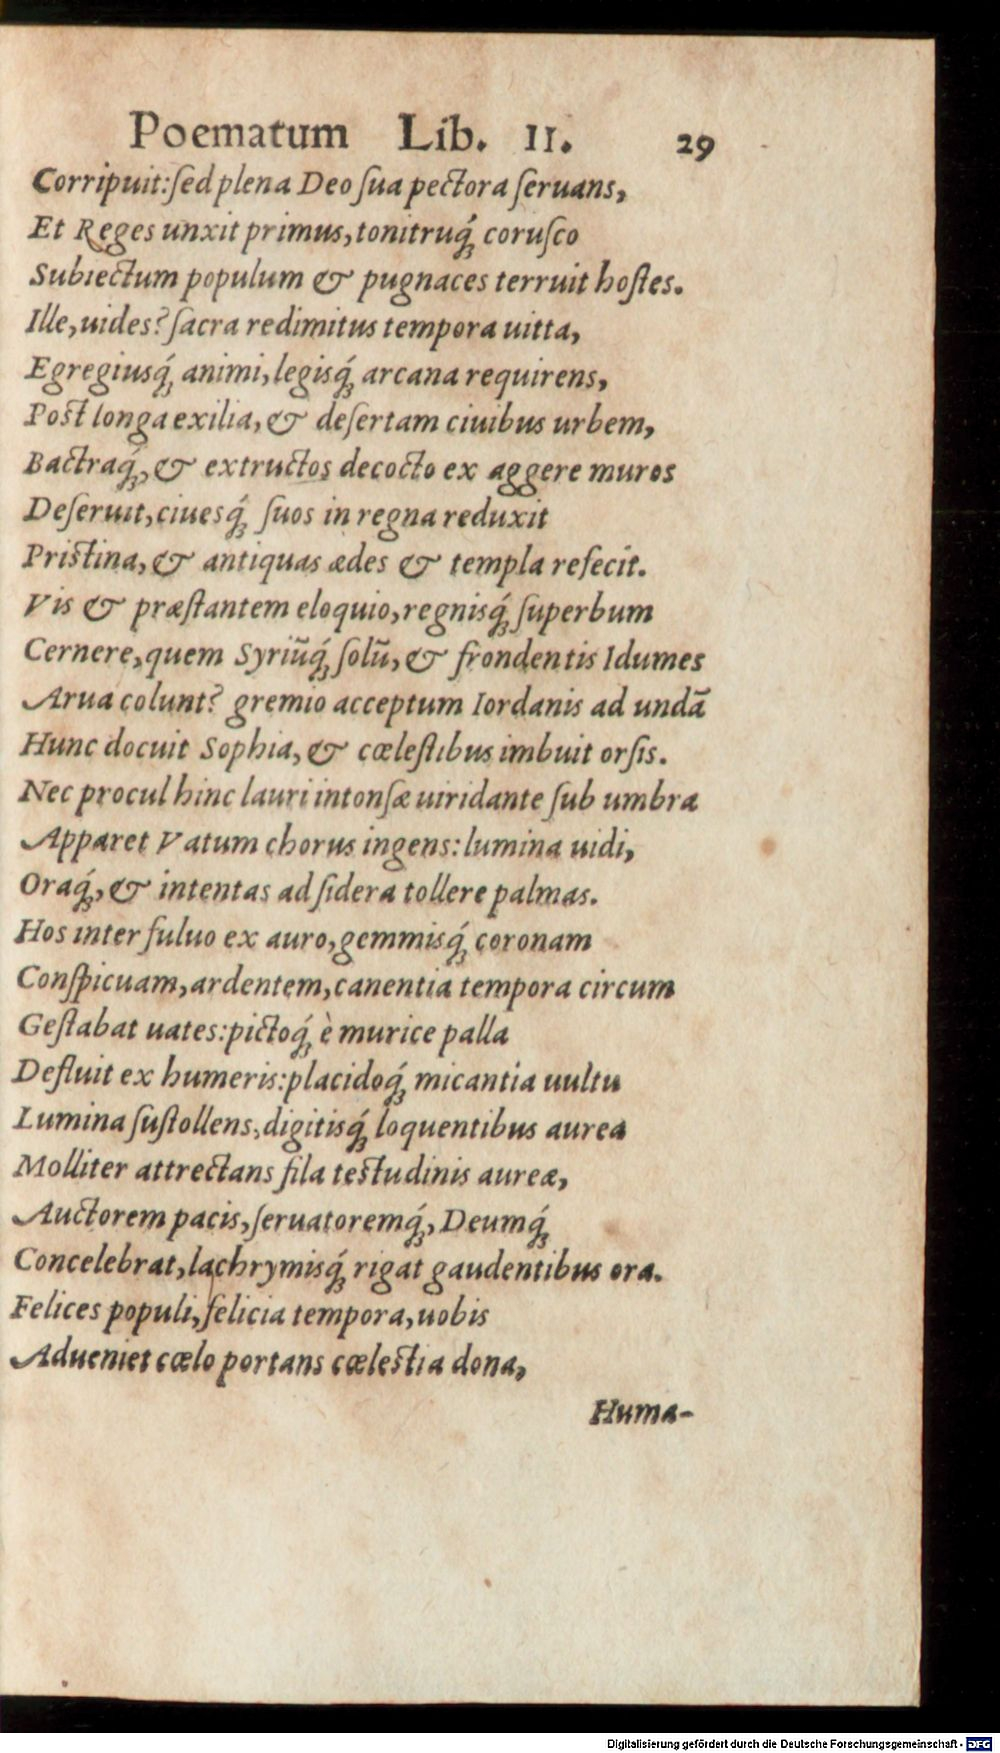 Poematum Lib. II. 29
Corripuit:ſed plena Deo ſua pectora ſeruans,
Et Reges unxit primus,tonitruq́; coruſco
Subiectum populum & pugnaces terruit hoſtes.
Ille,uides? ſacra redimitus tempora uitta,
Egregiusq́; animi,legisq́; arcana requirens,
Poſt longa exilia,& deſertam ciuibus urbem,
Bactraq́;,& extructos decocto ex aggere muros
Deſeruit,ciuesq́; ſuos in regna reduxit
Priſtina,& antiquas ædes & templa refecit.
Vis & præſtantem eloquio,regnisq́; ſuperbum
Cernere,quem Syriũq́; ſolũ,& frondentis Idumes
Arua colunt? gremio acceptum Iordanis ad undã
Hunc docuit Sophia,& cœleſtibus imbuit orſis.
Nec procul hinc lauri intonſæ uiridante ſub umbra
Apparet Vatum chorus ingens:lumina uidi,
Oraq́;,& intentas ad ſidera tollere palmas.
Hos inter fuluo ex auro,gemmisq́; coronam
Conſpicuam,ardentem,canentia tempora circum
Geſtabat uates:pictoq́; è murice palla
Defluit ex humeris:placidoq́; micantia uultu
Lumina ſuſtollens,digitisq́; loquentibus aurea
Molliter attrectans fila teſtudinis aureæ,
Auctorem pacis,ſeruatoremq́;,Deumq́;
Concelebrat,lachrymisq́; rigat gaudentibus ora.
Felices populi,felicia tempora,uobis
Adueniet cœlo portans cœleſtia dona,
Huma-
Digitalisierung gefördert durch die Deutsche Forschungsgemeinschaft - DFG